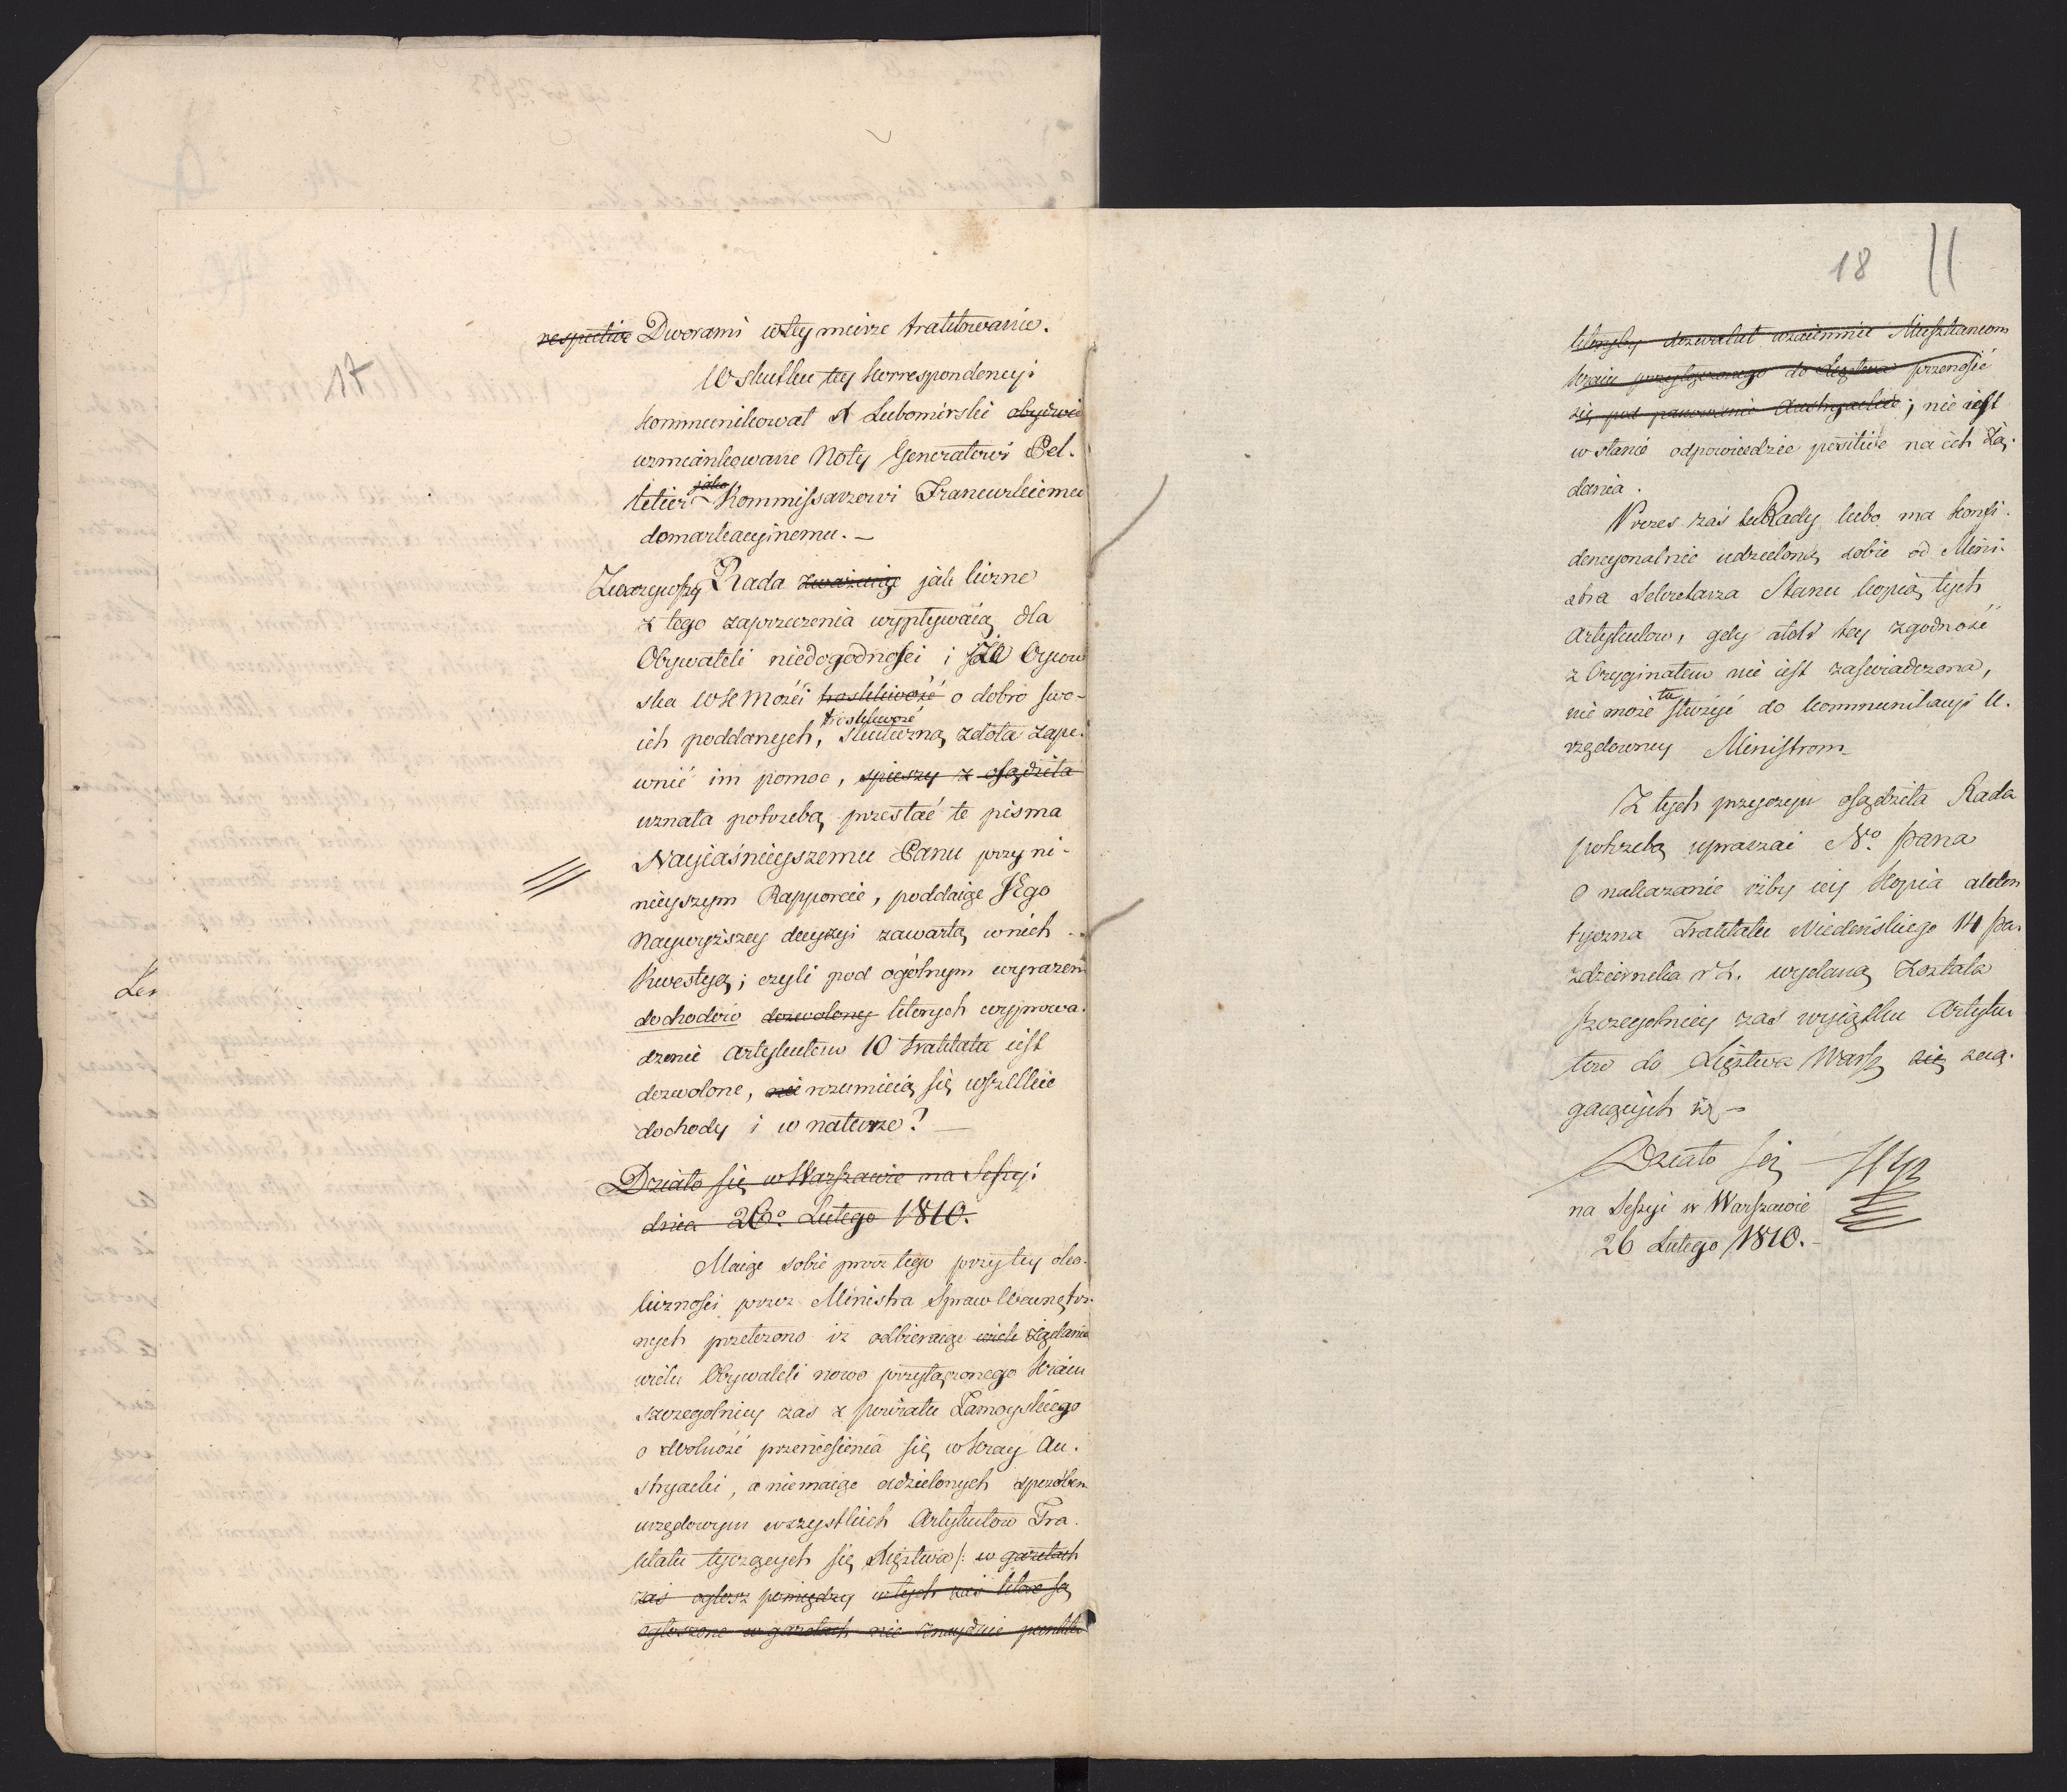 17
respective Dworami w tey mierze traktowanie.
W skutku tey korrespondencyi
kommunikował X Lubomirski obydwie
wzmiankowane Noty Generałowi Pel-
letier jako Kommissarzowi Francuzkiemu
demarkacyinemu. —
Zważywszy Rada zważaiąc jak liczne
z tego zaprzeczenia wypływaią dla
Obywateli niedogodności i że Oycow
ska WKMości troskliwość o dobro swo-
ich poddanych, troskliwość skuteczną zdoła zape-
wnić im pomoc, spieszy z osądziła
uznała potrzebą przesłać te pisma
Nayiaśnieyszemu Panu przy ni-
nieyszym Rapporcie, poddaiąc Jego
Naywyższey decyzyi zawartą w nich
kwestyą; czyli pod ogólnym wyrazem
dochodów dozwoloney których wyprowa-
dzenie Artykułem 10 Traktatu iest
dozwolone, nie rozumieią się wszelkie
dochody i w naturze? —
Działo się w Warszawie na Sessyi
dnia 26o Lutego 1810.
Maiąc sobie prócz tego przy tey oko-
liczności przez Ministra Spraw Wewnętrz-
nych przełożono iż odbieraiąc wiele żądania
wielu Obywateli nowo przyłączonego Kraiu
szczególniey zas z powiatu Zamoyskiego
o wolność przeniesienia się w Kray Au-
stryacki, a niemaiąc udzielonych sposobem
urzędowym wszystkich Artykułow Tra-
ktatu tyczących się Księstwa /: w gazetach
zaś ogłosz pomiędzy w tych zaś które są
ogłoszone w gazetach nie znayduie punktu
18 11
któryby dozwalał wzaiemnie Mieszkańcom
Kraiu przyłączonego do Księstwa przenosić
się pod panowanie Austryackie; nie iest
w stanie odpowiedzie positive na ich żą-
dania.
Przez zaś Rady lubo ma konfi-
dencyonalnie udzieloną sobie od Mini-
stra Sekretarza Stanu kopią tych
Artykułow, gdy atoli tey zgodność
z Oryginałem nie iest zaświadczona,
nie może tu służyć do kommunikacyi U-
rzędowney Ministrom
Z tych przyczyn osądziła Rada
potrzebą upraszać No. Pana
o nakazanie iżby iey kopia auten
tyczna Traktatu Wiedeńskiego 14 Pa-
zdziernika r. z. wydana została
szczególniey zas wyiątku Artyku
łow do Księstwa Warsz się scią-
gaiących się —
Działo się
na Sessyi w Warszawie
26 Lutego 1810. —